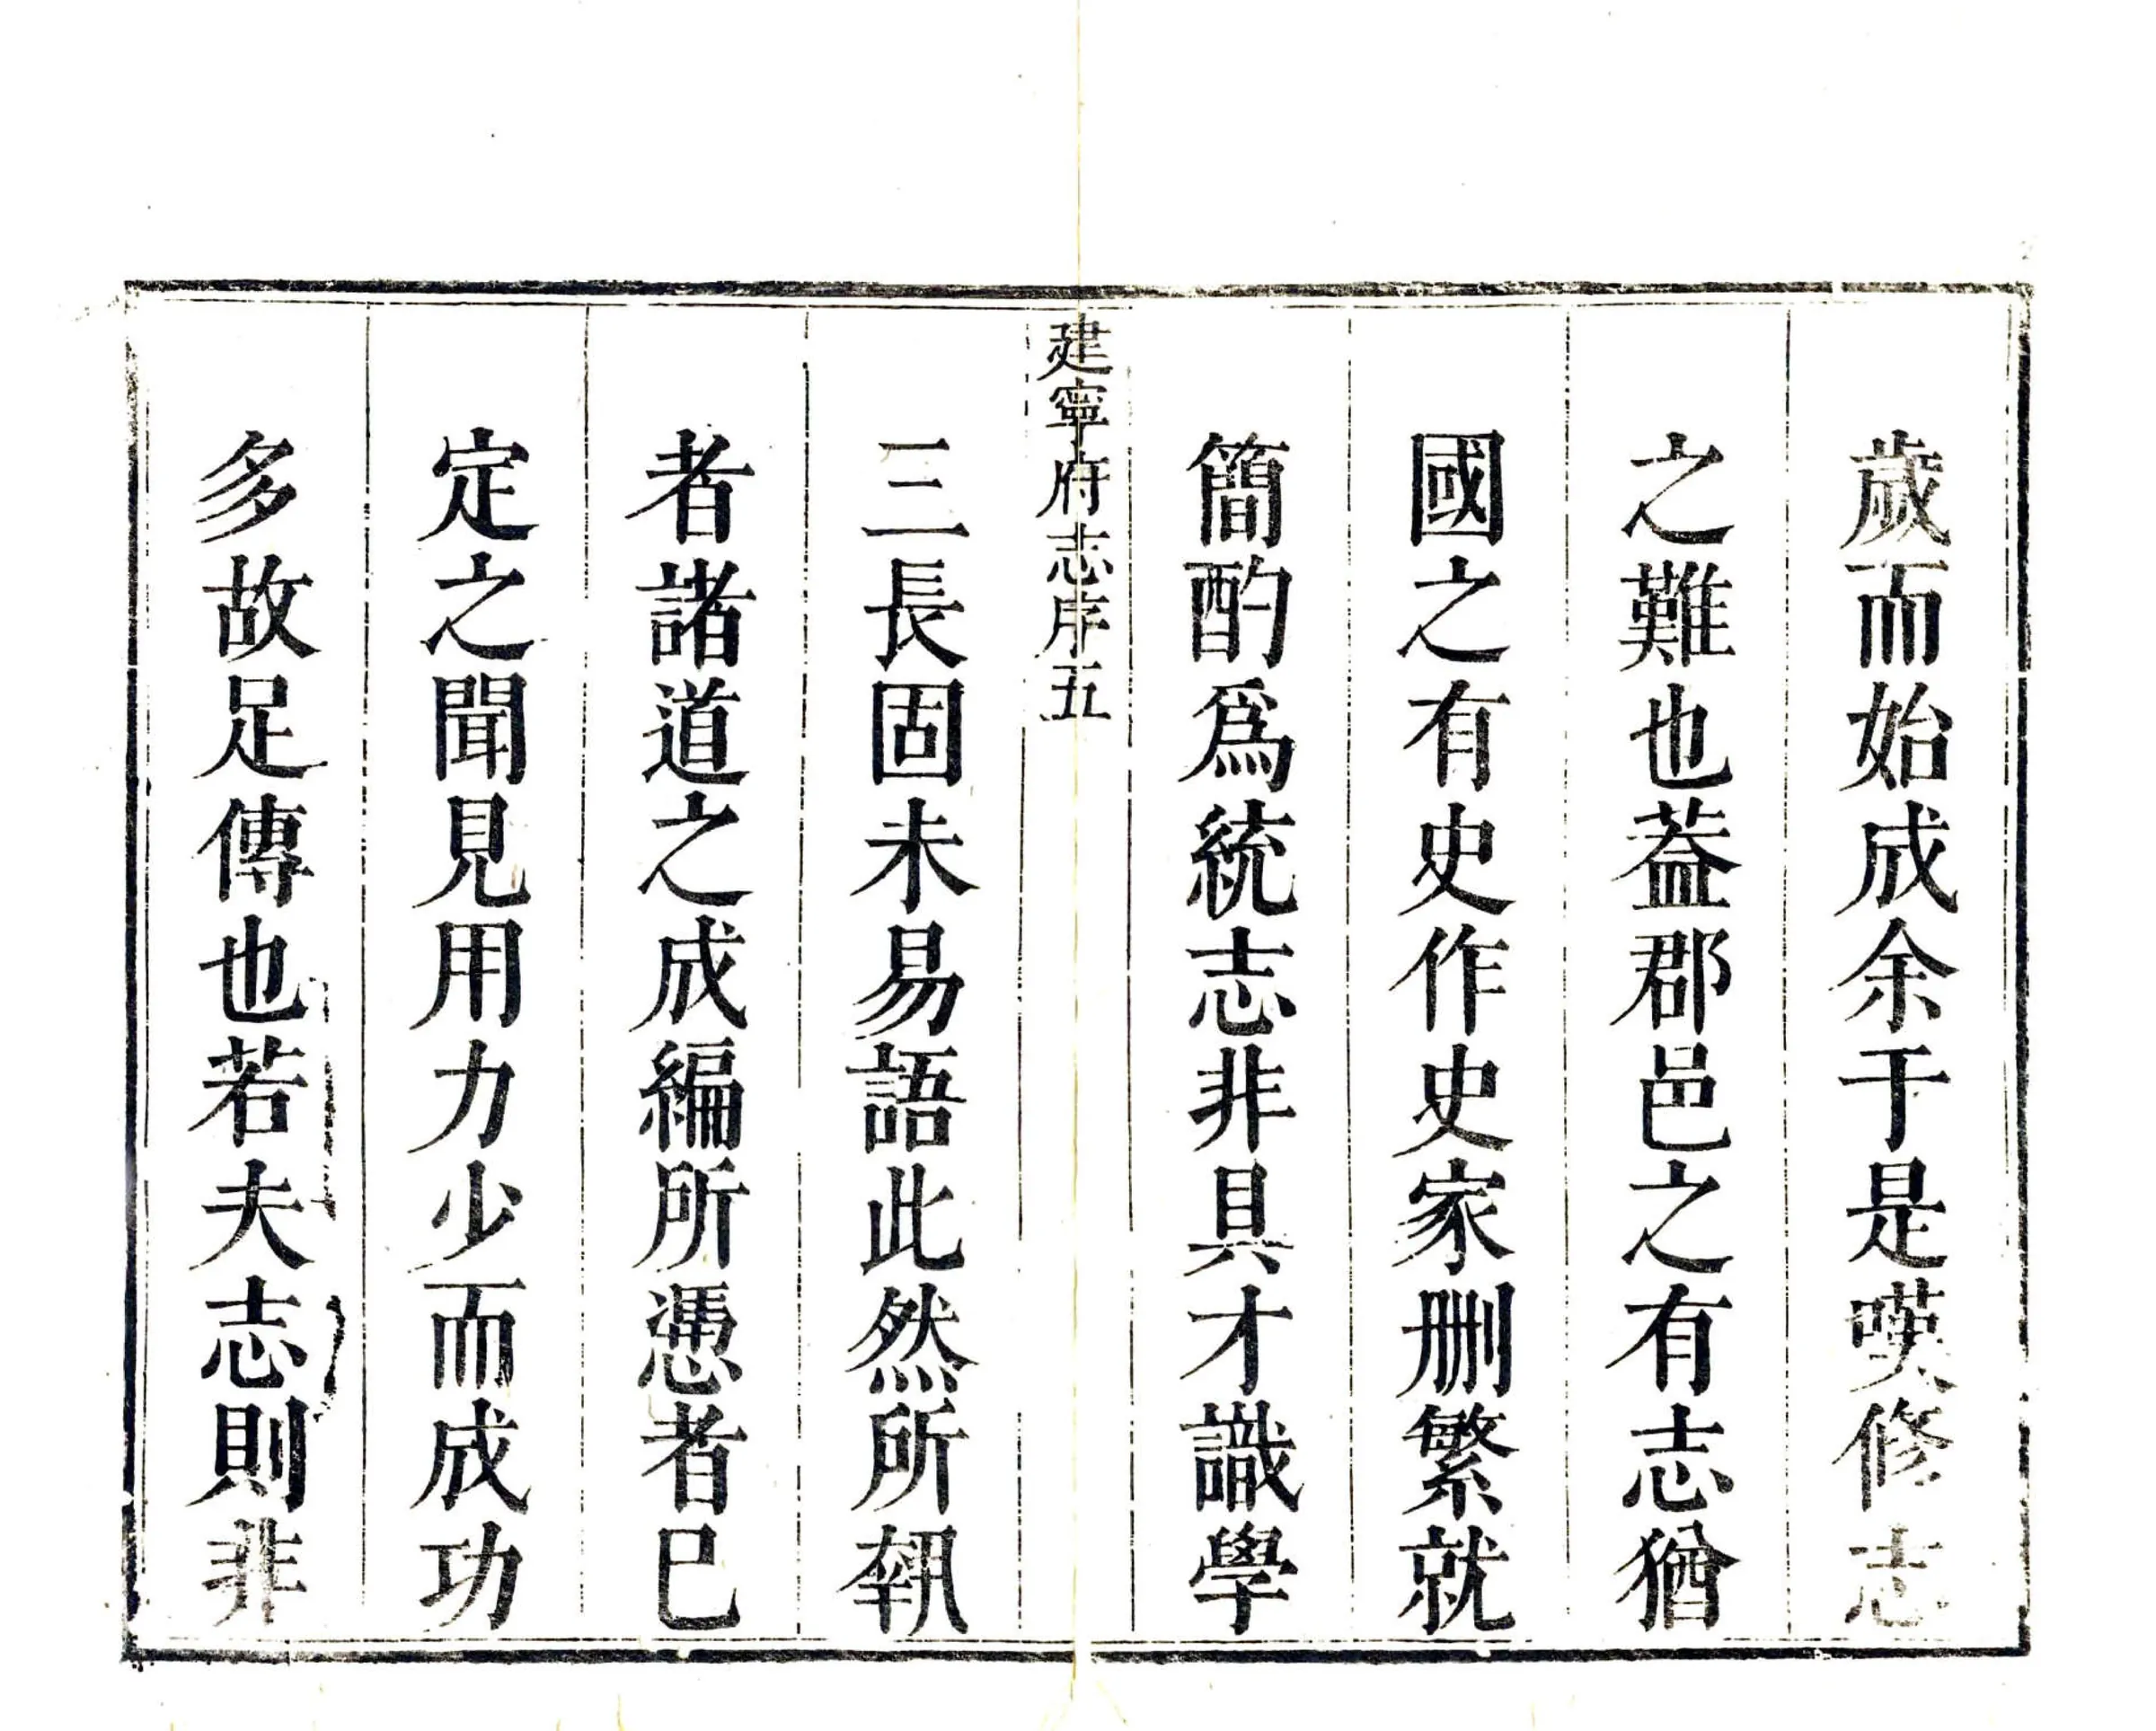 歲而始成余于是嘆修志
之難也葢郡邑之有志猶
國之有史作史家刪繁就
簡酌爲統志非具才識學
建寧府志序五
三長固未易語此然所執
者諸道之成編所憑者已
定之聞見用力少而成功
多故足傳也若夫志則非